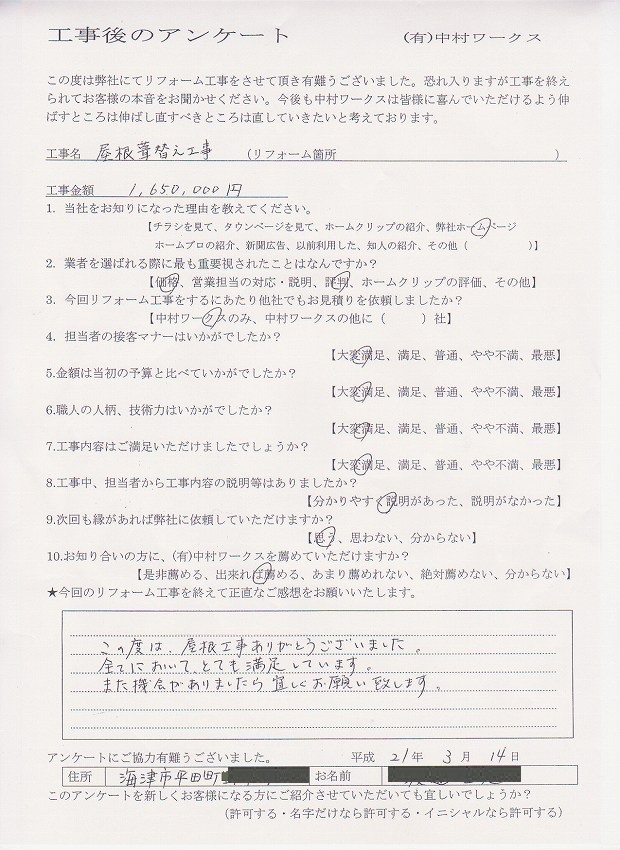 工事後のアンケート (有)中村ワークス
この度は弊社にてリフォーム工事をさせて頂き有難うございました。恐れ入りますが工事を終え
られてお客様の本音をお聞かせください。今後も中村ワークスは皆様に喜んでいただけるよう伸
ばすところは伸ばし直すべきところは直していきたいと考えております。
工事名 屋根葺替え工事 (リフォーム箇所 )
工事金額 1,650,000円
1. 当社をお知りになった理由を教えてください。
【チラシを見て、タウンページを見て、ホームクリップの紹介、弊社ホームページ
ホームプロの紹介、新聞広告、以前利用した、知人の紹介、その他( )】
2. 業者を選ばれる際に最も重要視されたことはなんですか?
【価格、営業担当の対応・説明、評判、ホームクリップの評価、その他】
3. 今回リフォーム工事をするにあたり他社でもお見積りを依頼しましたか?
【中村ワークスのみ、中村ワークスの他に( )社】
4. 担当者の接客マナーはいかがでしたか?
【大変満足、満足、普通、やや不満、最悪】
5.金額は当初の予算と比べていかがでしたか?
【大変満足、満足、普通、やや不満、最悪】
6.職人の人柄、技術力はいかがでしたか?
【大変満足、満足、普通、やや不満、最悪】
7.工事内容はご満足いただけましたでしょうか?
【大変満足、満足、普通、やや不満、最悪】
8.工事中、担当者から工事内容の説明等はありましたか?
【分かりやすく説明があった、説明がなかった】
9.次回も縁があれば弊社に依頼していただけますか?
【思う、思わない、分からない】
10.お知り合いの方に、(有)中村ワークスを薦めていただけますか?
【是非薦める、出来れば薦める、あまり薦めれない、絶対薦めない、分からない】
★今回のリフォーム工事を終えて正直なご感想をお願いいたします。
この度は、屋根工事ありがとうございました。
全てにおいて、とても満足しています。
また機会がありましたら宜しくお願い致します。
アンケートにご協力有難うございました。 平成 21年 3月 14日
住所 海津市平田町 お名前
このアンケートを新しくお客様になる方にご紹介させていただいても宜しいでしょうか?
(許可する・名字だけなら許可する・イニシャルなら許可する)